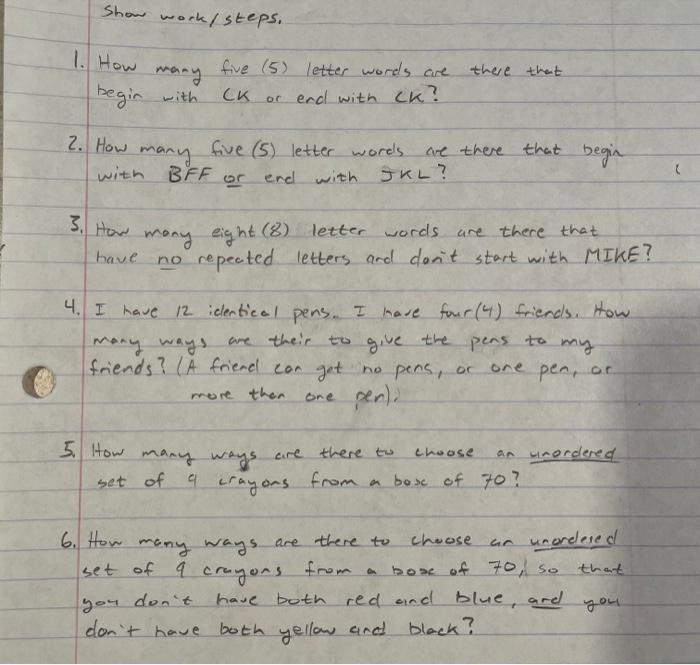 Show work/steps.
1. How many five (5) letter words are there that
begin with CK or end with CK?
2. How many five (5) letter words are there that begin
with BFF or end with JKL?
3. How many eight (8) letter words are there that
have no repeated letters and don't start with MIKE?
4. I have 12 identical pens. I have four (4) friends. How
many ways are their to give the pens to my
friends? (A friend can get no pens, or one pen, or
more then one pen).
5. How many ways are there to choose an unordered
set of 9 crayons from a box of 70?
6. How many ways are there to choose an unordered
set of 9 crayons from a box of 70, so that
you don't have both red and blue, and you
don't have both yellow and black?